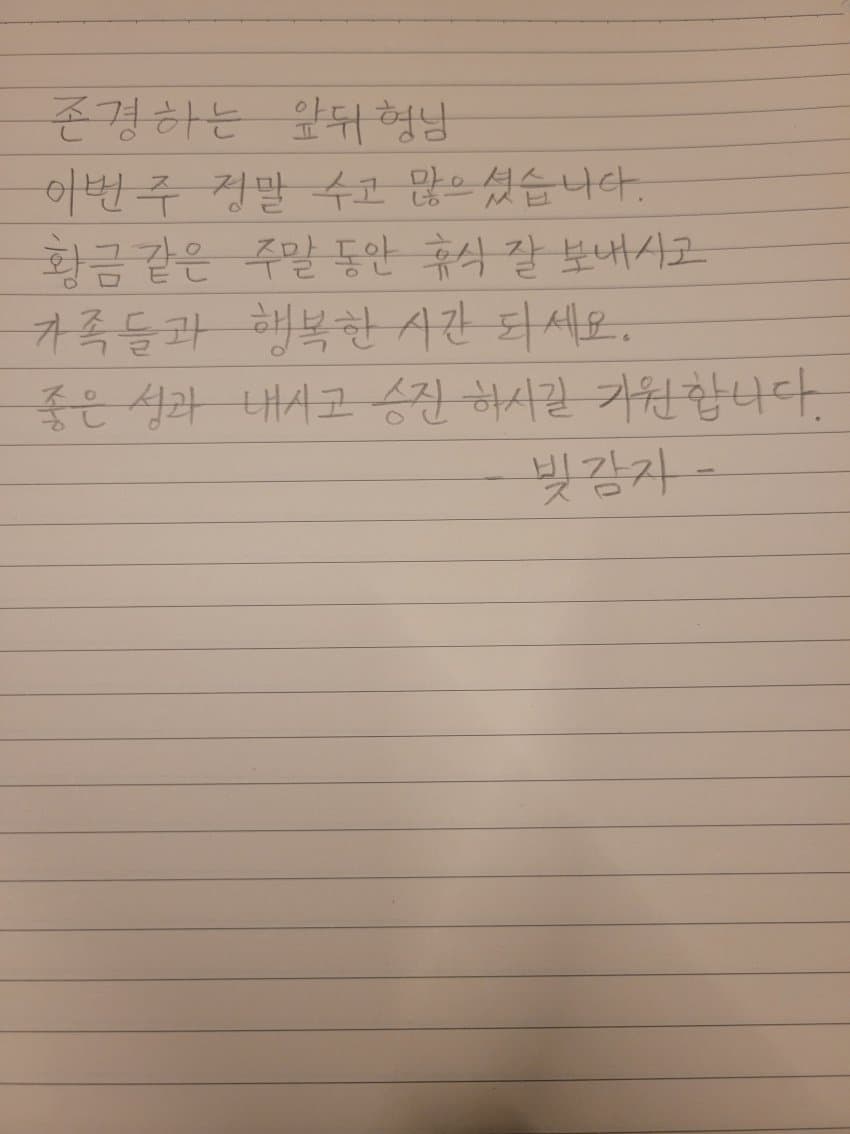 존경하는 앞뒤 형님
이번 주 정말 수고 많으셨습니다.
황금같은 주말 동안 휴식 잘 보내시고
가족들과 행복한 시간 되세요.
좋은 성과 내시고 승진 하시길 기원합니다.
- 빚감자 -